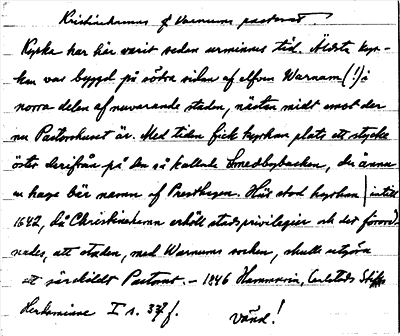 Kristinehamns & Varnums pastorat
Kyrka har här varit sedan urminnes tid. Äldsta kyr-
kan var byggd på södra sidan af elfven Warnam (!) i
norra delen af nuvarande staden, nästan midt emot der
nu Pastorshuset är. Med tiden fick kyrkan plats ett stycke
öster derifrån på den så kallade Smedbybacken, der ännu
en hage bär namn af Presthagen. Här stod kyrkan intill
1642, då Christinehamn erhöll stadsprivilegier och det förord-
nades, att staden, med Warnums socken, skulle utgöra
ett särskildt Pastorat. – 1846 Hammarin, Carlstads Stifts
Herdaminne I s. 337 f.
Vänd!